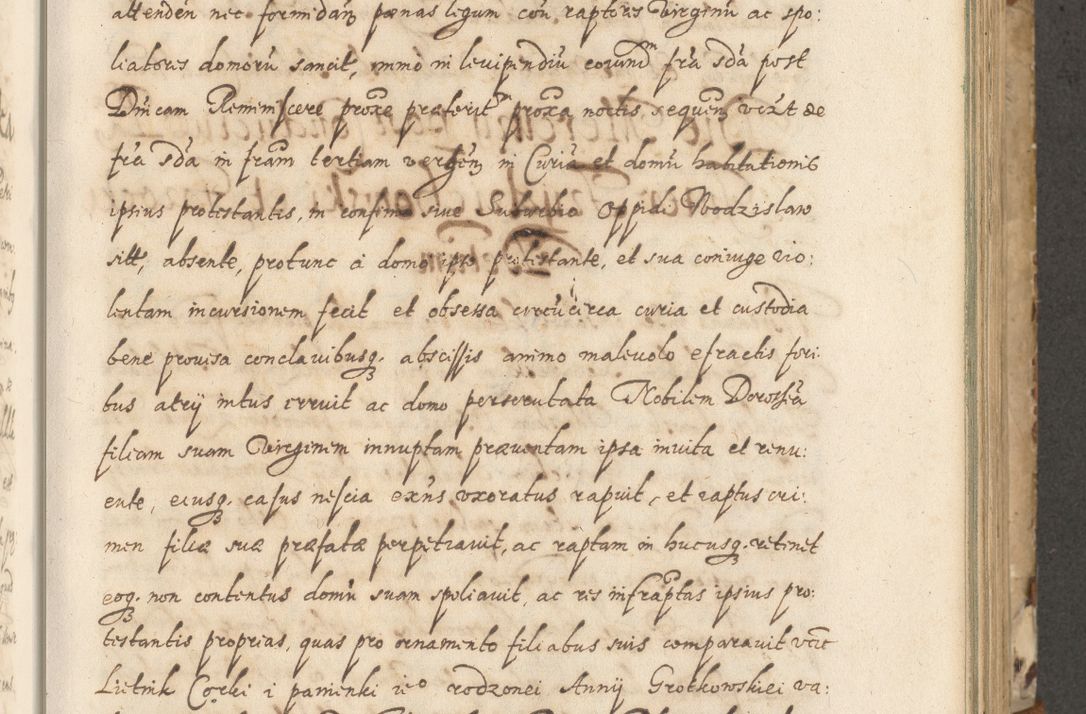 attendeñ nec formidañ pænas legum coñ raptores Virginũ ac spo:
liatores domorũ sancit, immò in levipendiũ eorundm fra sda post
Dnicam Reminiscere proxe præterit proxa noctis, sequeñ vezt de
fra sda in fram tertiam vergeñ in Curia et domũ habitationis
ipsius protestantis, in confinio sive Suburbio Oppidi Wodzislaw
sitt, absente, protunc a domo ipso protestante, et sua coniuge vio:
lentam incursionem fecit et obsessa circũcirca curia et custodia
bene provisa conclavibusq; abscissis animo malevolo efractis fori:
bus atrÿ intus irruit ac domo perscrutata Nobilem Dorotheã
filiam suam Virginem innuptam præventam ipsa invita et renu:
ente, eiusq; casus nescia exñs uxoratus rapuit, et raptus cri:
men filiæ suæ præfatæ perpetravit, ac raptam in hucusq; retinet
eoq; non contentus domũ suam spoliavit, ac res infraptas ipsius pro:
testantis proprias, quas pro ornamento filiabus suis comparavit vctt
Lietnik Corki i panienki ieo rodzonei Annÿ Grotkowskiei va: